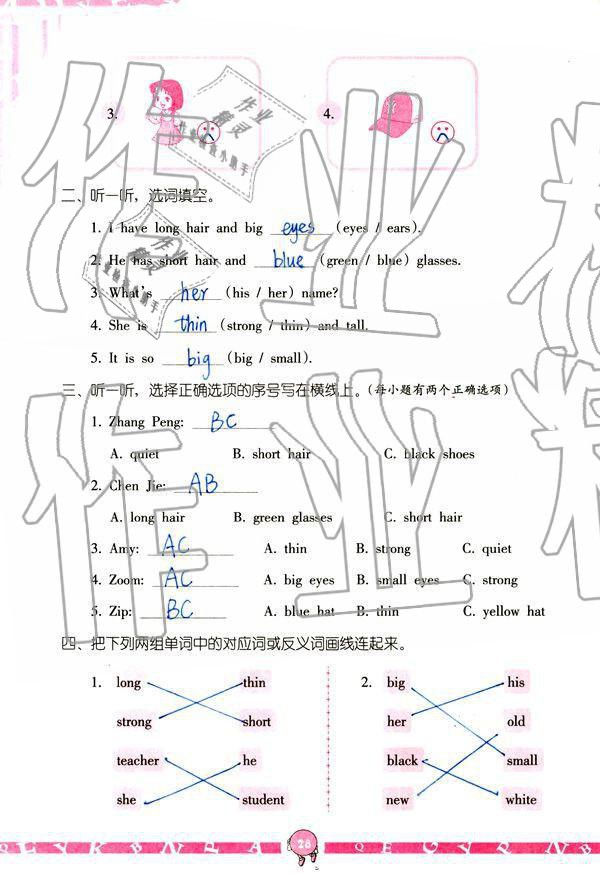 3.
4.
二、听一听，选词填空。
1. I have long hair and big eyes (eyes / ears).
2. He has short hair and blue (green / blue) glasses.
3. What's her (his / her) name?
4. She is thin (strong / thin) and tall.
5. It is so big (big / small).
三、听一听，选择正确选项的序号写在横线上。(每小题有两个正确选项)
1. Zhang Peng: BC
A. quiet B. short hair C. black shoes
2. Chen Jie: AB
A. long hair B. green glasses C. short hair
3. Amy: AC A. thin B. strong C. quiet
4. Zoom: AC A. big eyes B. small eyes C. strong
5. Zip: BC A. blue hat B. thin C. yellow hat
四、把下列两组单词中的对应词或反义词画线连起来。
1. long thin 2. big his
strong short her old
teacher he black small
she student new white
28
作业精灵
作业检查小助手
作业精灵
业检查小助手
作业精
作业精